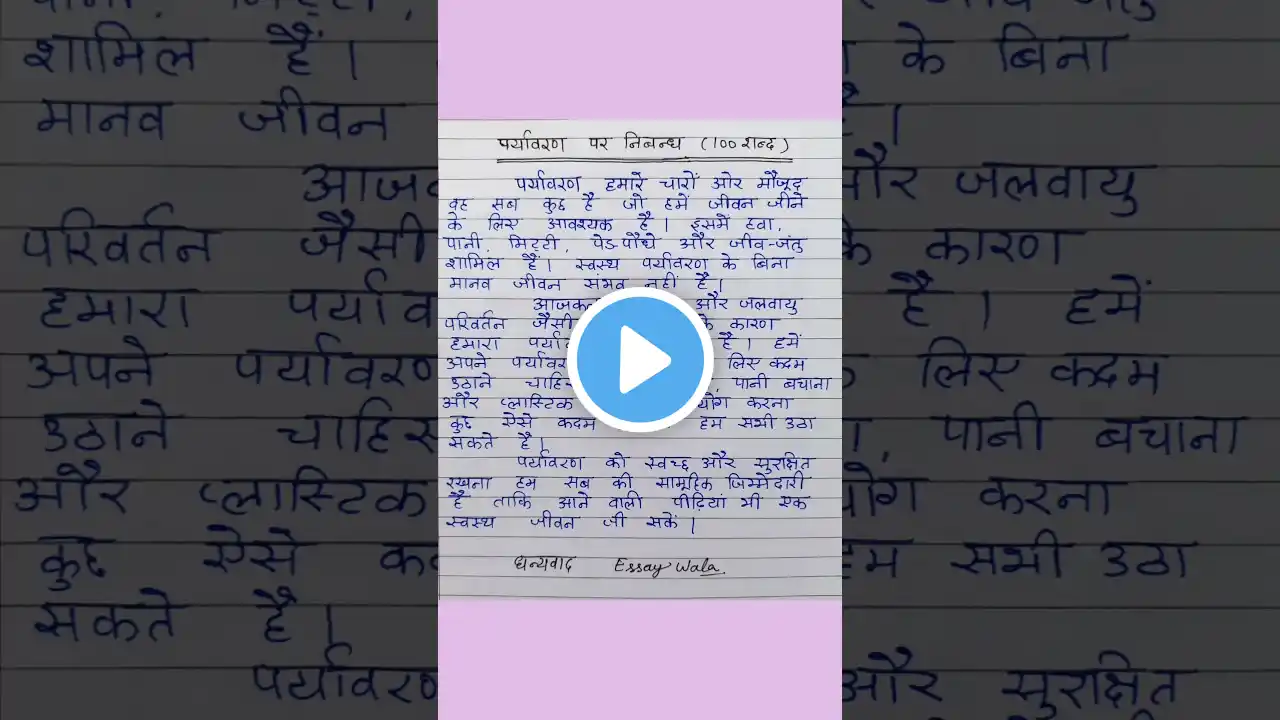 पर्यावरण पर निबन्ध (100 शब्द)
पर्यावरण हमारे चारों ओर मौजूद
वह सब कुछ है जो हमें जीवन जीने
के लिए आवश्यक है। इसमें हवा,
पानी, मिट्टी, पेड़-पौधे और जीव-जंतु
शामिल हैं। स्वस्थ पर्यावरण के बिना
मानव जीवन संभव नहीं है।
और जलवायु
परिवर्तन जैसी के कारण
हमारा है। हमें
अपने लिए कदम
उठाने पानी बचाना
और प्लास्टिक करना
कुछ ऐसे कदम हम सभी उठा
सकते है।
पर्यावरण को स्वच्छ और सुरक्षित
रखना हम सब की सामूहिक जिम्मेदारी
है ताकि आने वाली पीढ़ियां भी एक
स्वस्थ जीवन जी सकें।
धन्यवाद Essay Wala